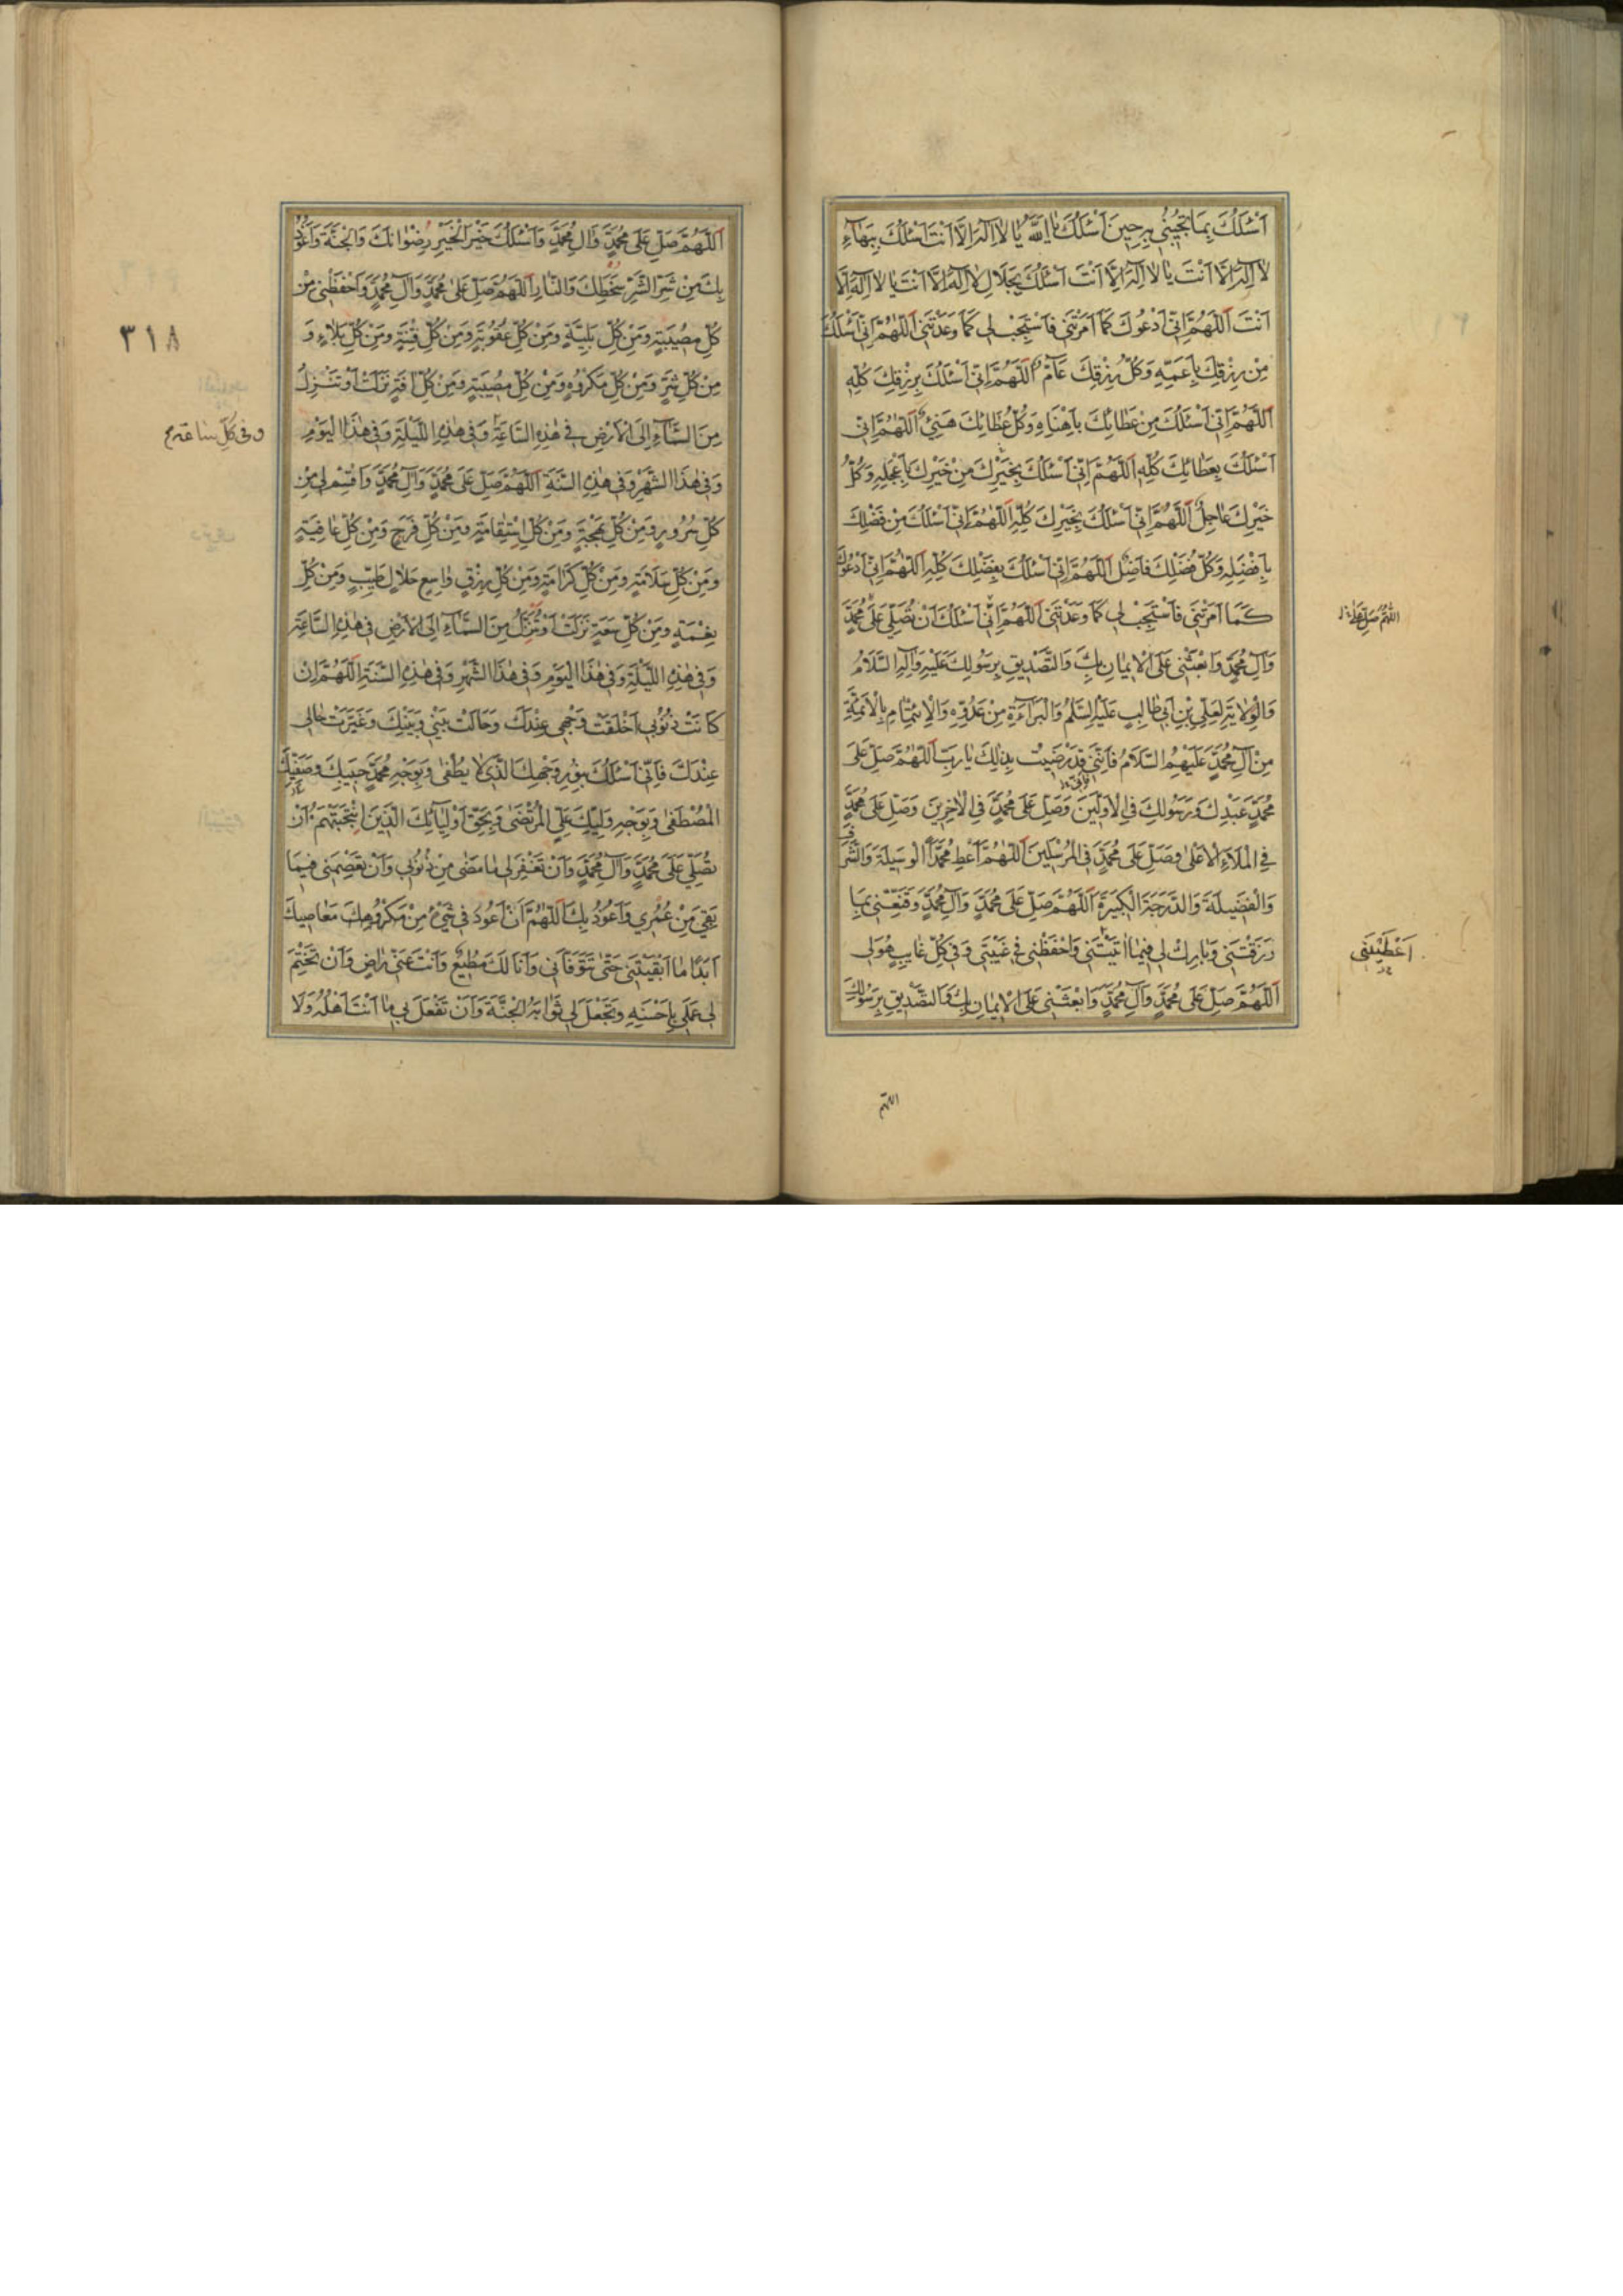 اَسْئَلُكَ بِمَا تُجِيْبُنِي بِهِ حِينَ اَسْئَلُكَ يا اَللّٰهُ يا لا اِلٰهَ اِلَّا اَنْتَ اَسْئَلُكَ بِبَهآءِ
لا اِلٰهَ اِلَّا اَنْتَ يا لا اِلٰهَ اِلَّا اَنْتَ اَسْئَلُكَ بِجَلالِ لا اِلٰهَ اِلَّا اَنْتَ يا لا اِلٰهَ اِلَّا
اَنْتَ اَللّٰهُمَّ اِنّي اَدْعُوكَ كَمَا اَمَرْتَنِي فَاسْتَجِبْ لِي كَمَا وَعَدْتَنِي اَللّٰهُمَّ اِنّي اَسْئَلُكَ
مِنْ رِزْقِكَ بِاَعَمِّهِ وَكُلُّ رِزْقِكَ عَآمٌّ اَللّٰهُمَّ اِنّي اَسْئَلُكَ بِرِزْقِكَ كُلِّهِ
اَللّٰهُمَّ اِنّي اَسْئَلُكَ مِنْ عَطائِكَ بِاَهْنَاِهِ وَكُلُّ عَطائِكَ هَنِيْءٌ اَللّٰهُمَّ اِنّي
اَسْئَلُكَ بِعَطائِكَ كُلِّهِ اَللّٰهُمَّ اِنّي اَسْئَلُكَ بِخَيْرِكَ مِنْ خَيْرِكَ بِاَعْجَلِهِ وَكُلُّ
خَيْرِكَ عاجِلٌ اَللّٰهُمَّ اِنّي اَسْئَلُكَ بِخَيْرِكَ كُلِّهِ اَللّٰهُمَّ اِنّي اَسْئَلُكَ مِنْ فَضْلِكَ
بِاَفْضَلِهِ وَكُلُّ فَضْلِكَ فاضِلٌ اَللّٰهُمَّ اِنّي اَسْئَلُكَ بِفَضْلِكَ كُلِّهِ اَللّٰهُمَّ اِنّي اَدْعُوكَ
كَمَا اَمَرْتَنِي فَاسْتَجِبْ لِي كَمَا وَعَدْتَنِي اَللّٰهُمَّ اِنّي اَسْئَلُكَ اَنْ تُصَلِّيَ عَلَى مُحَمَّدٍ
وَآلِ مُحَمَّدٍ وَابْعَثْنِي عَلَى الْاِيمانِ بِكَ وَالتَّصْدِيقِ بِرَسُولِكَ عَلَيْهِ وَآلِهِ السَّلامُ
وَالْوِلايَةِ لِعَلِيِّ بْنِ اَبِي طالِبٍ عَلَيْهِ السَّلَمُ وَالْبَرَآءَةِ مِنْ عَدُوِّهِ وَالْاِئْتِمامِ بِالْاَئِمَّةِ
مِنْ آلِ مُحَمَّدٍ عَلَيْهِمُ السَّلامُ فَاِنَّنِي قَدْ رَضِيْتُ بِذلِكَ يا رَبِّ اَللّٰهُمَّ صَلِّ عَلَى
مُحَمَّدٍ عَبْدِكَ وَرَسُولِكَ فِي الْاَوَّلِينَ وَصَلِّ عَلَى مُحَمَّدٍ فِي الْاٰخِرِينَ وَصَلِّ عَلَى مُحَمَّدٍ
فِي الْمَلَاءِ الْاَعْلى وَصَلِّ عَلَى مُحَمَّدٍ فِي الْمُرْسَلِينَ اَللّٰهُمَّ اَعْطِ مُحَمَّدًا الْوَسِيلَةَ وَالشَّرَفَ
وَالْفَضِيلَةَ وَالدَّرَجَةَ الْكَبِيرَةَ اَللّٰهُمَّ صَلِّ عَلَى مُحَمَّدٍ وَآلِ مُحَمَّدٍ وَقَنِّعْنِي بِمَا
رَزَقْتَنِي وَبارِكْ لِي فِيمَا اٰتَيْتَنِي وَاحْفَظْنِي فِي غَيْبَتِي وَفِي كُلِّ غايِبٍ هُوَ لِي
اَللّٰهُمَّ صَلِّ عَلَى مُحَمَّدٍ وَآلِ مُحَمَّدٍ وَابْعَثْنِي عَلَى الْاِيمانِ بِكَ وَالتَّصْدِيقِ بِرَسُولِكَ
اَعْطَيْتَنِي
اللهم
اَللّٰهُمَّ صَلِّ عَلَى مُحَمَّدٍ وَآلِ مُحَمَّدٍ وَاَسْئَلُكَ خَيْرَ الْخَيْرِ رِضْوانَكَ وَالْجَنَّةَ وَاَعُوذُ
بِكَ مِنْ شَرِّ الشَّرِّ سَخَطِكَ وَالنّارِ اَللّٰهُمَّ صَلِّ عَلى مُحَمَّدٍ وَآلِ مُحَمَّدٍ وَاحْفَظْنِي مِنْ
كُلِّ مُصِيبَةٍ وَمِنْ كُلِّ بَلِيَّةٍ وَمِنْ كُلِّ عُقُوبَةٍ وَمِنْ كُلِّ فِتْنَةٍ وَمِنْ كُلِّ بَلاءٍ وَ
مِنْ كُلِّ شَرٍّ وَمِنْ كُلِّ مَكْرُوهٍ وَمِنْ كُلِّ مُصِيبَةٍ وَمِنْ كُلِّ آفَةٍ نَزَلَتْ اَوْ تَنْزِلُ
مِنَ السَّمَآءِ اِلَى الْاَرْضِ فِي هٰذِهِ السَّاعَةِ وَفِي هٰذِهِ اللَّيْلَةِ وَفِي هٰذَا الْيَوْمِ
وَفِي هٰذَا الشَّهْرِ وَفِي هٰذِهِ السَّنَةِ اَللّٰهُمَّ صَلِّ عَلَى مُحَمَّدٍ وَآلِ مُحَمَّدٍ وَاقْسِمْ لِي مِنْ
كُلِّ سُرُورٍ وَمِنْ كُلِّ بَهْجَةٍ وَمِنْ كُلِّ اسْتِقامَةٍ وَمِنْ كُلِّ فَرَجٍ وَمِنْ كُلِّ عافِيَةٍ
وَمِنْ كُلِّ سَلامَةٍ وَمِنْ كُلِّ كَرامَةٍ وَمِنْ كُلِّ رِزْقٍ واسِعٍ حَلالٍ طَيِّبٍ وَمِنْ كُلِّ
نِعْمَةٍ وَمِنْ كُلِّ سَعَةٍ نَزَلَتْ اَوْ تَنْزِلُ مِنَ السَّمَآءِ اِلَى الْاَرْضِ فِي هٰذِهِ السَّاعَةِ
وَفِي هٰذِهِ اللَّيْلَةِ وَفِي هٰذَا الْيَوْمِ وَفِي هٰذَا الشَّهْرِ وَفِي هٰذِهِ السَّنَةِ اَللّٰهُمَّ اِنْ
كانَتْ ذُنُوبِي اَخْلَقَتْ وَجْهِي عِنْدَكَ وَحالَتْ بَيْنِي وَبَيْنَكَ وَغَيَّرَتْ حالِي
عِنْدَكَ فَاِنّي اَسْئَلُكَ بِنُورِ وَجْهِكَ الَّذِي لا يُطْفى وَبِوَجْهِ مُحَمَّدٍ حَبِيبِكَ وَصَفِيِّكَ
الْمُصْطَفى وَبِوَجْهِ وَلِيِّكَ عَلِيٍّ الْمُرْتَضى وَبِحَقِّ اَوْلِيآئِكَ الَّذِينَ انْتَجَبْتَهُمْ اَنْ
تُصَلِّيَ عَلَى مُحَمَّدٍ وَآلِ مُحَمَّدٍ وَاَنْ تَغْفِرَ لِي ما مَضى مِنْ ذُنُوبِي وَاَنْ تَعْصِمَنِي فِيمَا
بَقِيَ مِنْ عُمْرِي وَاَعُوذُ بِكَ اَللّٰهُمَّ اَنْ اَعُودَ فِي شَيْءٍ مِنْ مَكْرُوهِكَ مَعاصِيكَ
اَبَدًا ما اَبْقَيْتَنِي حَتّى تَتَوَفّانِي وَاَنَا لَكَ مُطِيعٌ وَاَنْتَ عَنّي راضٍ وَاَنْ تَخْتِمَ
لِي عَمَلِي بِاَحْسَنِهِ وَتَجْعَلَ لِي ثَوابَهُ الْجَنَّةَ وَاَنْ تَفْعَلَ بِي ما اَنْتَ اَهْلُهُ وَلَا
٣١٨
وفي كلّ ساعة